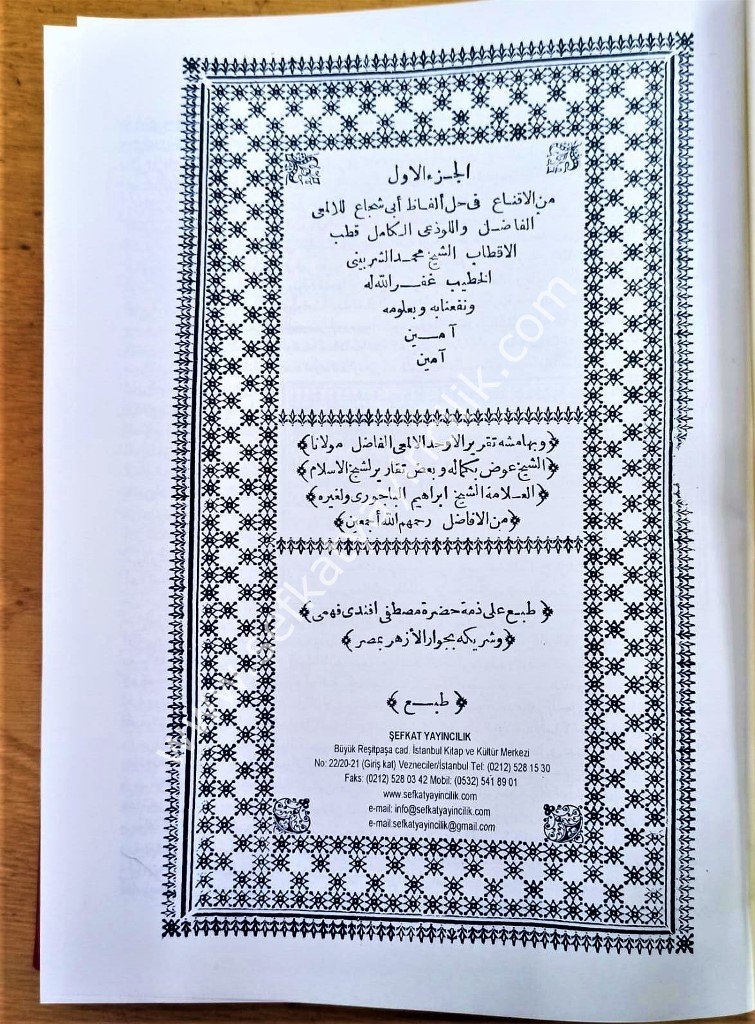 الجزء الاول
من الاقناع فى حل ألفاظ أبى شجاع للالمعى
الفاضل واللوذعى الكامل قطب
الاقطاب الشيخ محمد الشربينى
الخطيب غفر الله له
ونفعنا به وبعلومه
آمين
آمين
﴿وبهامشه تقرير الاوحد الالمعى الفاضل مولانا﴾
﴿الشيخ عوض بكماله وبعض تقارير لشيخ الاسلام﴾
﴿العلامة الشيخ ابراهيم الباجورى ولغيره﴾
﴿من الافاضل رحمهم الله أجمعين﴾
﴿طبع على ذمة حضرة مصطفى افندى فهمى﴾
﴿وشريكه بجوار الأزهر بمصر﴾
﴿طبع﴾
ŞEFKAT YAYINCILIK
Büyük Reşitpaşa cad. İstanbul Kitap ve Kültür Merkezi
No: 22/20-21 (Giriş kat) Vezneciler/İstanbul Tel: (0212) 528 15 30
Faks: (0212) 528 03 42 Mobil: (0532) 541 89 01
www.sefkatyayincilik.com
e-mail: info@sefkatyayincilik.com
e-mail:sefkatyayincilik@gmail.com
www.sefkatyayincilik.com